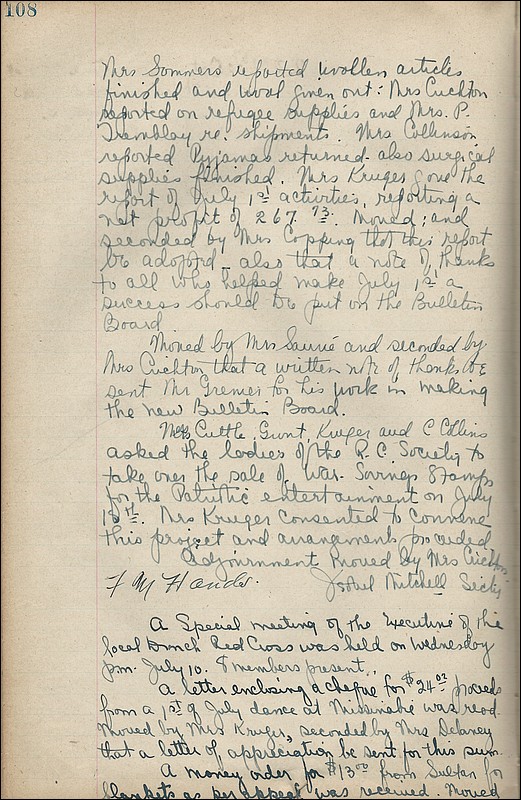 108
Mrs Sommers reported woollen articles
finished and wool given out. Mrs Crichton
reported on refugee supplies and Mrs. P.
Tremblay re. shipments. Mrs Collinson
reported Pyjamas returned also surgical
supplies finished. Mrs Kruger gave the
report of July 1st activities, reporting a
net profit of 267.73. Moved; and
seconded by Mrs Copping that this report
be adopted, also that a note of thanks
to all who helped make July 1st a
success should be put on the Bulletin
Board
Moved by Mrs and seconded by
Mrs Crichton that a written note of thanks be
sent Mr for his work in making
the new Bulletin Board.
Cuttle, Grant, Kruger and C Collins
asked the ladies of the R.C. Society to
take over the sale of War Savings Stamps
for the Patriotic entertainment on July
Mrs Kruger consented to convene
this project and arrangements proceeded
Adjournment moved by Mrs Crichton
F M Isobel Mitchell Secty
A Special meeting of the Executive of the
local branch Red Cross was held on Wednesday
pm. July 10. 8 members present.
A letter enclosing a cheque for $24.02 proceeds
from a 1st of July dance at Missinabie was read.
Moved by Mrs Kruger, seconded by Mrs Delaney
that a letter of appreciation be sent for this sum.
A money order for $13.00 from Sultan for
blankets as per appeal was received. Moved